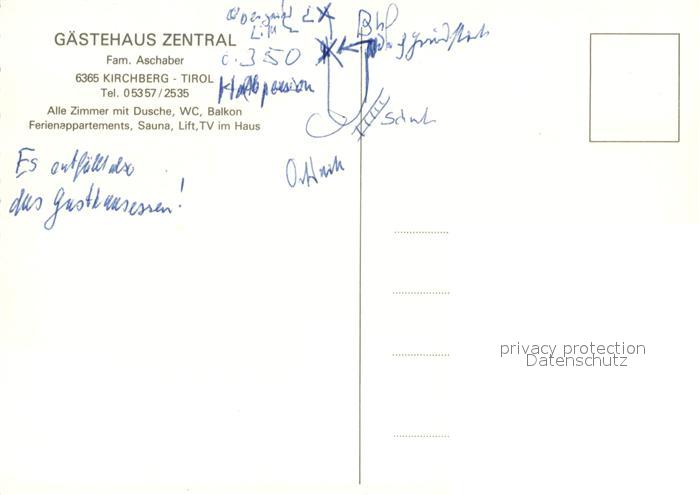 GÄSTEHAUS ZENTRAL
Fam. Aschaber
6365 KIRCHBERG - TIROL
Tel. 05357/2535
Alle Zimmer mit Dusche, WC, Balkon
Ferienappartements, Sauna, Lift, TV im Haus
c. 350
Halbpension
Bhf
Es entfällt also
das Gasthausessen!
privacy protection
Datenschutz